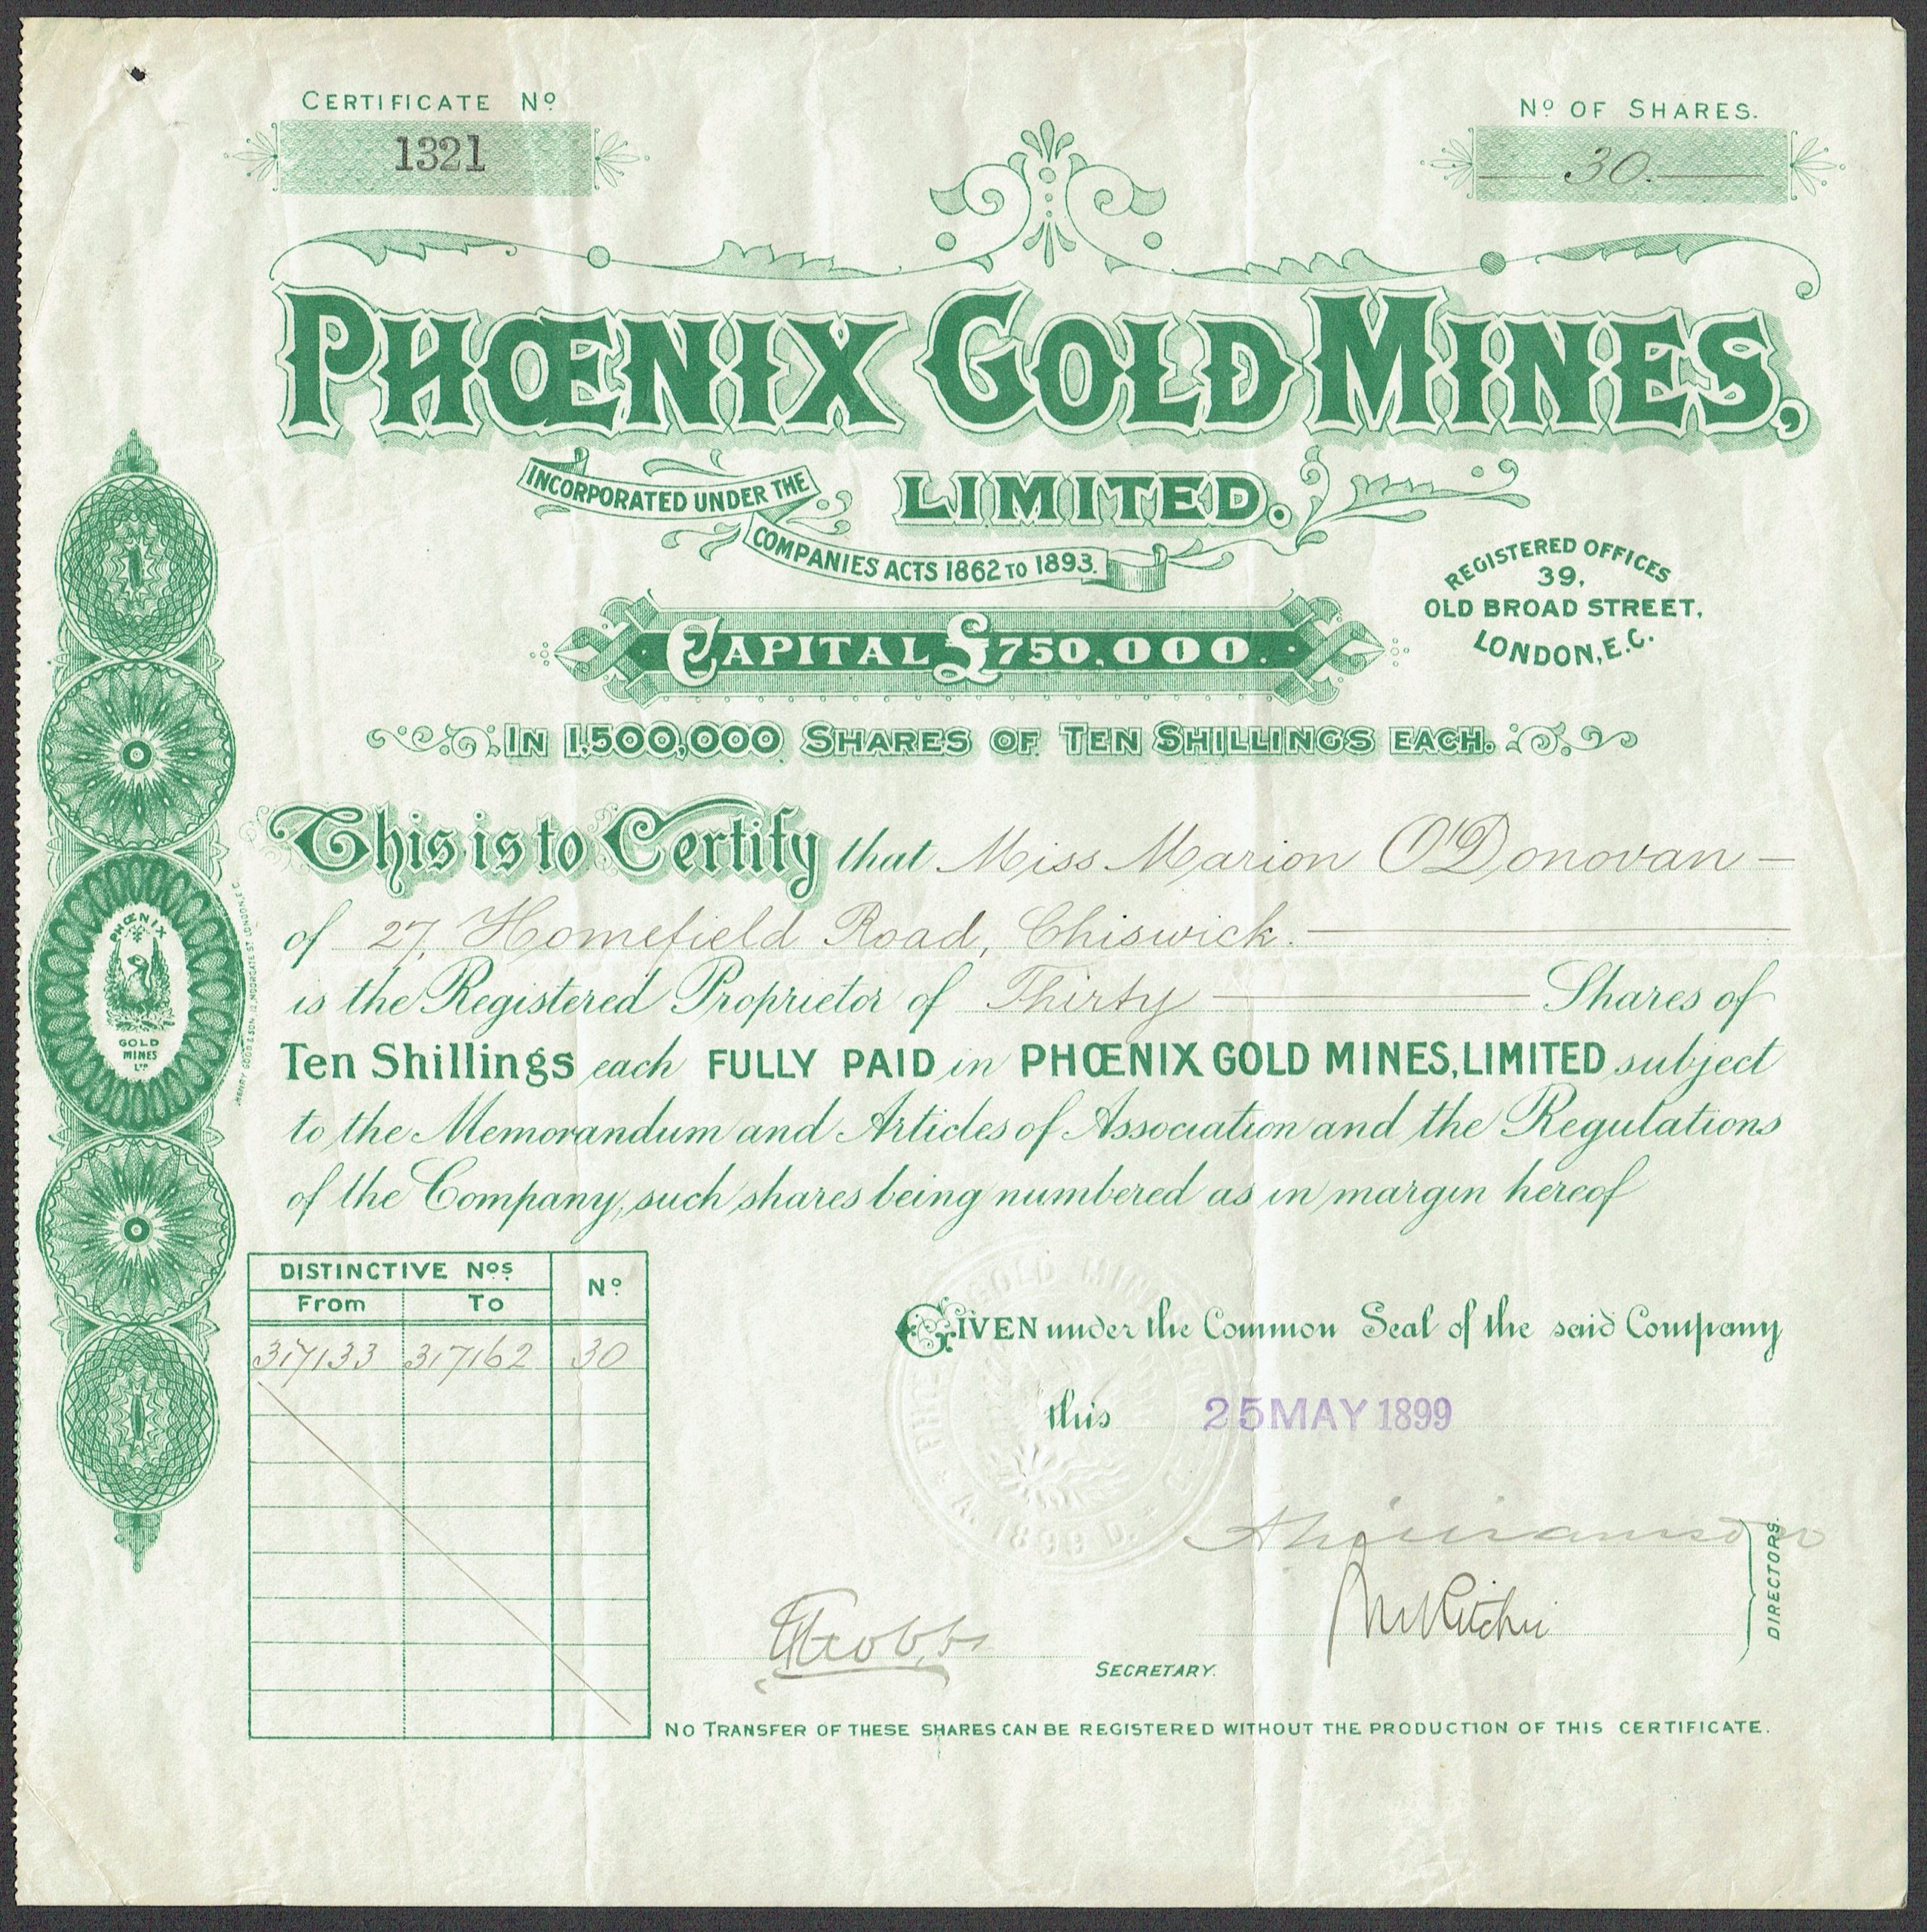 CERTIFICATE Nº
1321
Nº OF SHARES.
30.
PHŒNIX GOLD MINES,
LIMITED.
INCORPORATED UNDER THE
COMPANIES ACTS 1862 TO 1893.
REGISTERED OFFICES
39,
OLD BROAD STREET,
LONDON, E.C.
CAPITAL £750,000.
IN 1,500,000 SHARES OF TEN SHILLINGS EACH.
This is to Certify that Miss Marion O'Donovan
of 27, Homefield Road, Chiswick.
is the Registered Proprietor of Thirty Shares of
Ten Shillings each FULLY PAID in PHŒNIX GOLD MINES, LIMITED subject
to the Memorandum and Articles of Association and the Regulations
of the Company, such shares being numbered as in margin hereof
1
PHŒNIX
GOLD
MINES
LTD
1
DISTINCTIVE Nos Nº
From To
317133 317162 30
GIVEN under the Common Seal of the said Company
this 25 MAY 1899
GOLD MIN
A. 1898 D.
DIRECTORS.
SECRETARY.
NO TRANSFER OF THESE SHARES CAN BE REGISTERED WITHOUT THE PRODUCTION OF THIS CERTIFICATE.